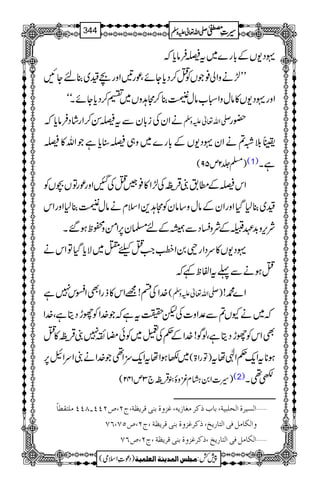 344 سیرتِ مصطفیٰ صلی اللہ تعالیٰ علیہ وسلم
یہودیوں کے بارے میں یہ فیصلہ فرمایا کہ
’’لڑنے والی فوجوں کو قتل کر دیا جائے، عورتیں اور بچے قیدی بنا لئے جائیں
اور یہودیوں کا مال و اسباب مالِ غنیمت بنا کر مجاہدوں میں تقسیم کر دیا جائے۔‘‘
حضور صلی اللہ تعالیٰ علیہ وسلم نے ان کی زبان سے یہ فیصلہ سن کر ارشاد فرمایا کہ
یقیناً بلا شبہ تم نے ان یہودیوں کے بارے میں وہی فیصلہ سنایا ہے جو اللہ کا فیصلہ
ہے۔ (1) (مسلم جلد ۲ ص ۹۵)
اس فیصلہ کے مطابق بنی قریظہ کی لڑاکا فوجیں قتل کی گئیں اور عورتوں بچوں کو
قیدی بنا لیا گیا اور ان کے مال و سامان کو مجاہدین اسلام نے مالِ غنیمت بنا لیا اور اس
شریر و بدعہد قبیلہ کے شر و فساد سے ہمیشہ کے لئے مسلمان پرامن و محفوظ ہو گئے۔
یہودیوں کا سردار حیی بن اخطب جب قتل کے لئے مقتل میں لایا گیا تو اس نے
قتل ہونے سے پہلے یہ الفاظ کہے کہ
اے محمد! (صلی اللہ تعالیٰ علیہ وسلم) خدا کی قسم! مجھے اس کا ذرا بھی افسوس نہیں ہے
کہ میں نے کیوں تم سے عداوت کی لیکن حقیقت یہ ہے کہ جو خدا کو چھوڑ دیتا ہے، خدا
بھی اس کو چھوڑ دیتا ہے، لوگو! خدا کے حکم کی تعمیل میں کوئی مضائقہ نہیں بنی قریظہ کا قتل
ہونا یہ ایک حکم الٰہی تھا یہ (توراۃ) میں لکھا ہوا تھا یہ ایک سزا تھی جو خدا نے بنی اسرائیل پر
لکھی تھی۔ (2) (سیرت ابن ہشام غزوۂ بنو قریظہ ج ۳ ص ۲۴۱)
……السیرة الحلبیة، باب ذکر مغازیہ، غزوة بنی قریظة، ج۲، ص ۴۴۲۔۴۴۸ ملتقطاً
والکامل فی التاریخ، ذکر غزوة بنی قریظة، ج۲، ص ۷۵،۷۶
……الکامل فی التاریخ، ذکر غزوة بنی قریظة، ج۲، ص ۷۶
پیش کش: مجلس المدینة العلمیة (دعوتِ اسلامی)